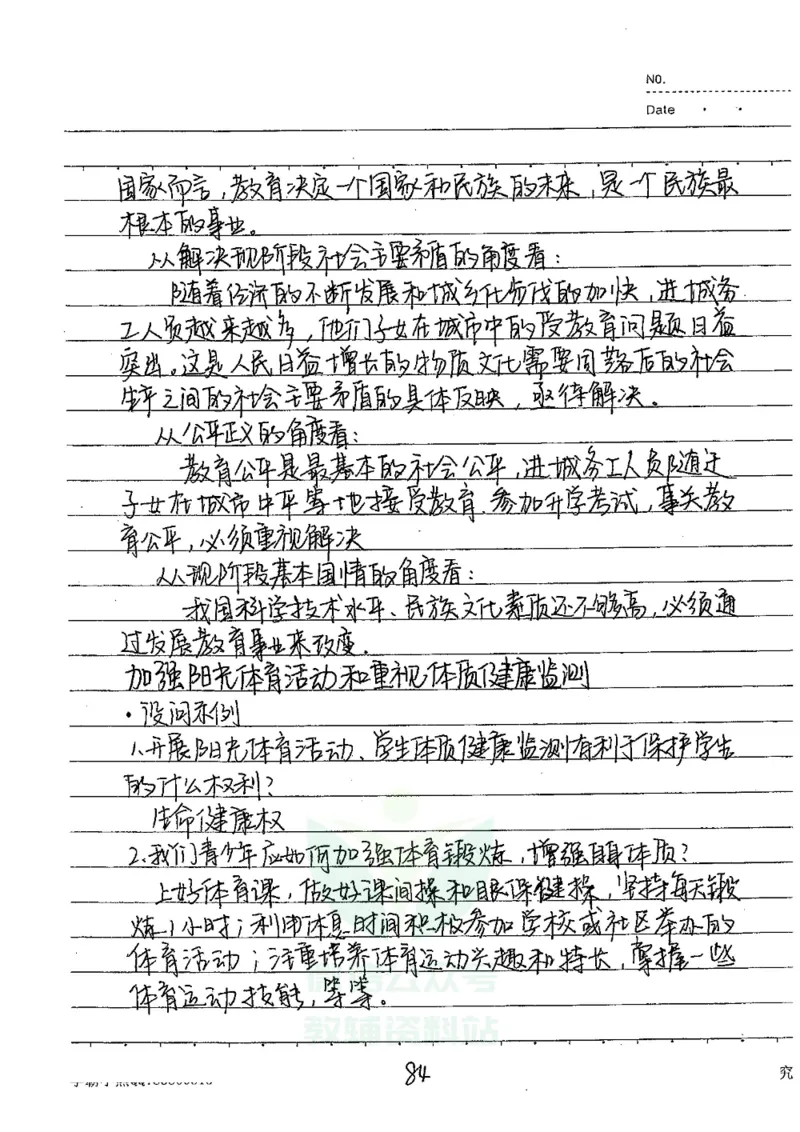 NO.
Date
国家而言,教育决定一个国家和民族的未来,是一个民族最
根本的事业。
从解决现阶段社会主要矛盾的角度看:
随着经济的不断发展和城乡化步伐的加快,进城务
工人员越来越多,他们子女在城市中的受教育问题日益
突出。这是人民日益增长的物质文化需要同落后的社会
生产之间的社会主要矛盾的具体反映,亟待解决。
从公平正义的角度看:
教育公平是最基本的社会公平,进城务工人员随迁
子女在城市中平等地接受教育.参加升学考试,事关教
育公平,必须重视解决
从现阶段基本国情的角度看:
我国科学技术水平、民族文化素质还不够高,必须通
过发展教育事业来改变.
加强阳光体育活动和重视体质健康监测
·设问示例
1.开展阳光体育活动、学生体质健康监测有利于保护学生
的什么权利?
生命健康权
2.我们青少年应如何加强体育锻炼,增强自身体质?
上好体育课,做好课间操和眼保健操,坚持每天锻
炼1小时;利用休息时间积极参加学校或社区举办的
体育活动;注重培养体育运动兴趣和特长,掌握一些
体育运动技能,等等。
教辅资料站
84
究